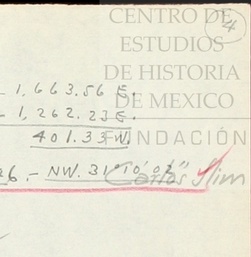 CENTRO DE
ESTUDIOS
DE HISTORIA
DE MEXICO
FUNDACIÓN
Carlos Slim
24
1,663.56 E.
1,262.23 E.
401.33 W.
26.- NW. 31°10'02"